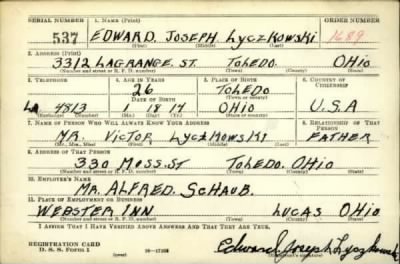 SERIAL NUMBER 1. NAME (Print) ORDER NUMBER
537 EDWARD JOSEPH LyczKowski 1689
(First) (Middle) (Last)
2. ADDRESS (Print)
3312 LAGRANGE. ST. TOLEDO. OHIO
(Number and street or R. F. D. number) (Town) (County) (State)
3. TELEPHONE 4. AGE IN YEARS 5. PLACE OF BIRTH 6. COUNTRY OF CITIZENSHIP
26 TOLEDO
DATE OF BIRTH (Town or county)
LA 4813 1 18 OHIO U.S.A
(Exchange) (Number) (Mo.) (Day) (Yr.) (State or country)
7. NAME OF PERSON WHO WILL ALWAYS KNOW YOUR ADDRESS 8. RELATIONSHIP OF THAT PERSON
MR. VICTOR LyczKowsKi FATHER
(Mr., Mrs., Miss) (First) (Middle) (Last)
9. ADDRESS OF THAT PERSON
330 MOSS. ST TOLEDO. OHIO
(Number and street or R. F. D. number) (Town) (County) (State)
10. EMPLOYER'S NAME
MR. ALFRED. SCHAUB.
11. PLACE OF EMPLOYMENT OR BUSINESS
WEBSTER INN LUCAS OHIO
(Number and street or R. F. D. number) (Town) (County) (State)
I AFFIRM THAT I HAVE VERIFIED ABOVE ANSWERS AND THAT THEY ARE TRUE.
REGISTRATION CARD
D. S. S. Form 1 (over) Edward Joseph Lyczkowski